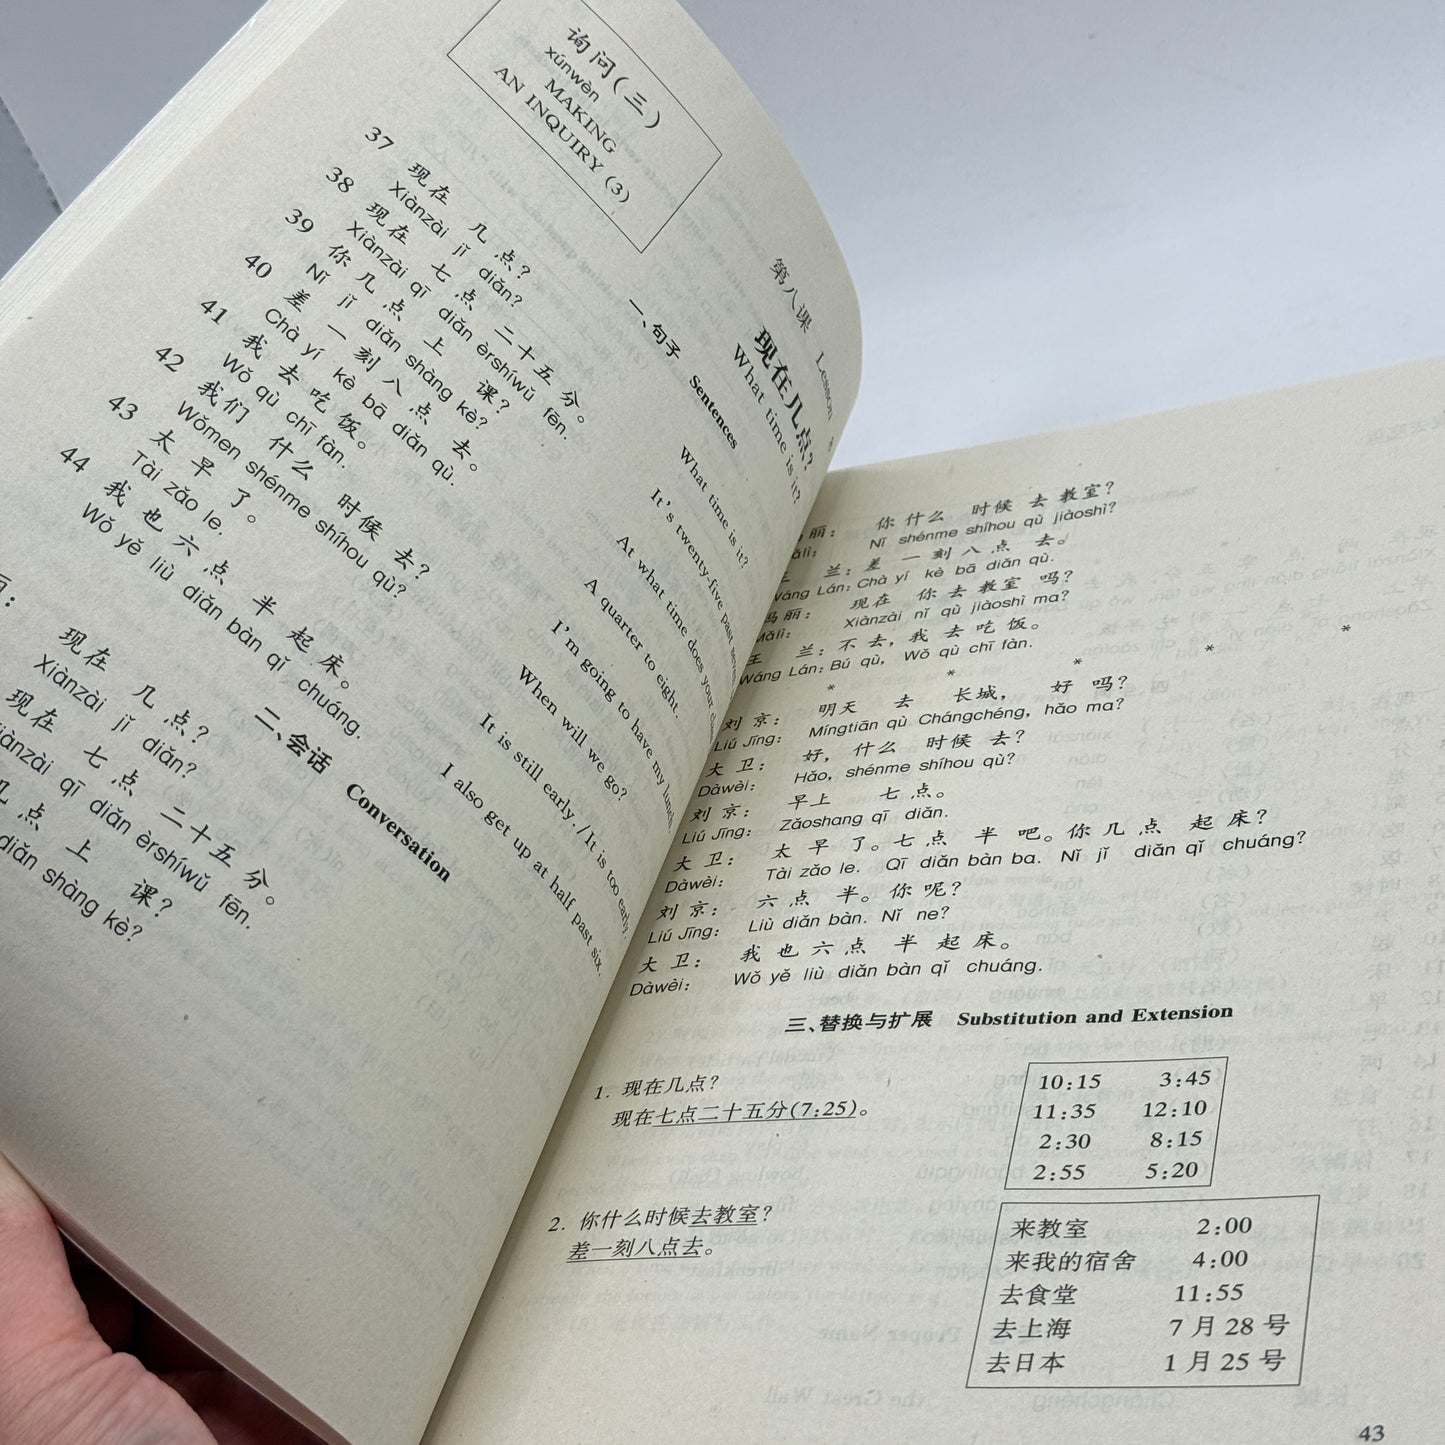 询问(三)
xúnwèn
MAKING
AN INQUIRY (3)
第八课 Lesson
现在几点?
What time is it?
一、句子 Sentences
37 现在 几 点?
Xiànzài jǐ diǎn?
What time is it?
38 现在 七 点 二十五分。
Xiànzài qī diǎn èrshíwǔ fēn.
It's twenty-five past seven
39 你 几 点 上 课?
Nǐ jǐ diǎn shàng kè?
At what time does your
40 差 一 刻 八 点 去。
Chà yí kè bā diǎn qù.
A quarter to eight.
41 我 去 吃 饭。
Wǒ qù chī fàn.
I'm going to have my lunch.
42 我们 什么 时候 去?
Wǒmen shénme shíhou qù?
When will we go?
43 太 早 了。
Tài zǎo le.
It is still early./It is too early.
44 我 也 六 点 半 起 床。
Wǒ yě liù diǎn bàn qǐ chuáng.
I also get up at half past six.
二、会话 Conversation
丽:
现在 几 点?
Xiànzài jǐ diǎn?
现在 七 点 二十五分。
qī diǎn èrshíwǔ fēn.
几 点 上 课?
diǎn shàng kè?
丽: 你什么 时候 去 教室?
Nǐ shénme shíhou qù jiàoshì?
兰: 差 一 刻 八 点 去。
Lán: Chà yí kè bā diǎn qù.
丽: 现在 你去 教室 吗?
Xiànzài nǐ qù jiàoshì ma?
王 兰: 不去, 我 去吃 饭。
Wáng Lán: Bú qù, Wǒ qù chī fàn.
* * * * *
刘 京: 明天 去 长城, 好 吗?
Liú Jīng: Míngtiān qù Chángchéng, hǎo ma?
大 卫: 好, 什么 时候 去?
Dàwèi: Hǎo, shénme shíhou qù?
刘 京: 早上 七 点。
Liú Jīng: Zǎoshang qī diǎn.
大 卫: 太 早 了。七 点 半 吧。你 几 点 起 床?
Dàwèi: Tài zǎo le. Qī diǎn bàn ba. Nǐ jǐ diǎn qǐ chuáng?
刘 京: 六 点 半。你 呢?
Liú Jīng: Liù diǎn bàn. Nǐ ne?
大 卫: 我 也 六 点 半 起 床。
Dàwèi: Wǒ yě liù diǎn bàn qǐ chuáng.
三、替换与扩展 Substitution and Extension
1. 现在几点?
现在七点二十五分(7:25)。
10:15 3:45
11:35 12:10
2:30 8:15
2:55 5:20
2. 你什么时候去教室?
差一刻八点去。
来教室 2:00
来我的宿舍 4:00
去食堂 11:55
去上海 7月28号
去日本 1月25号
43